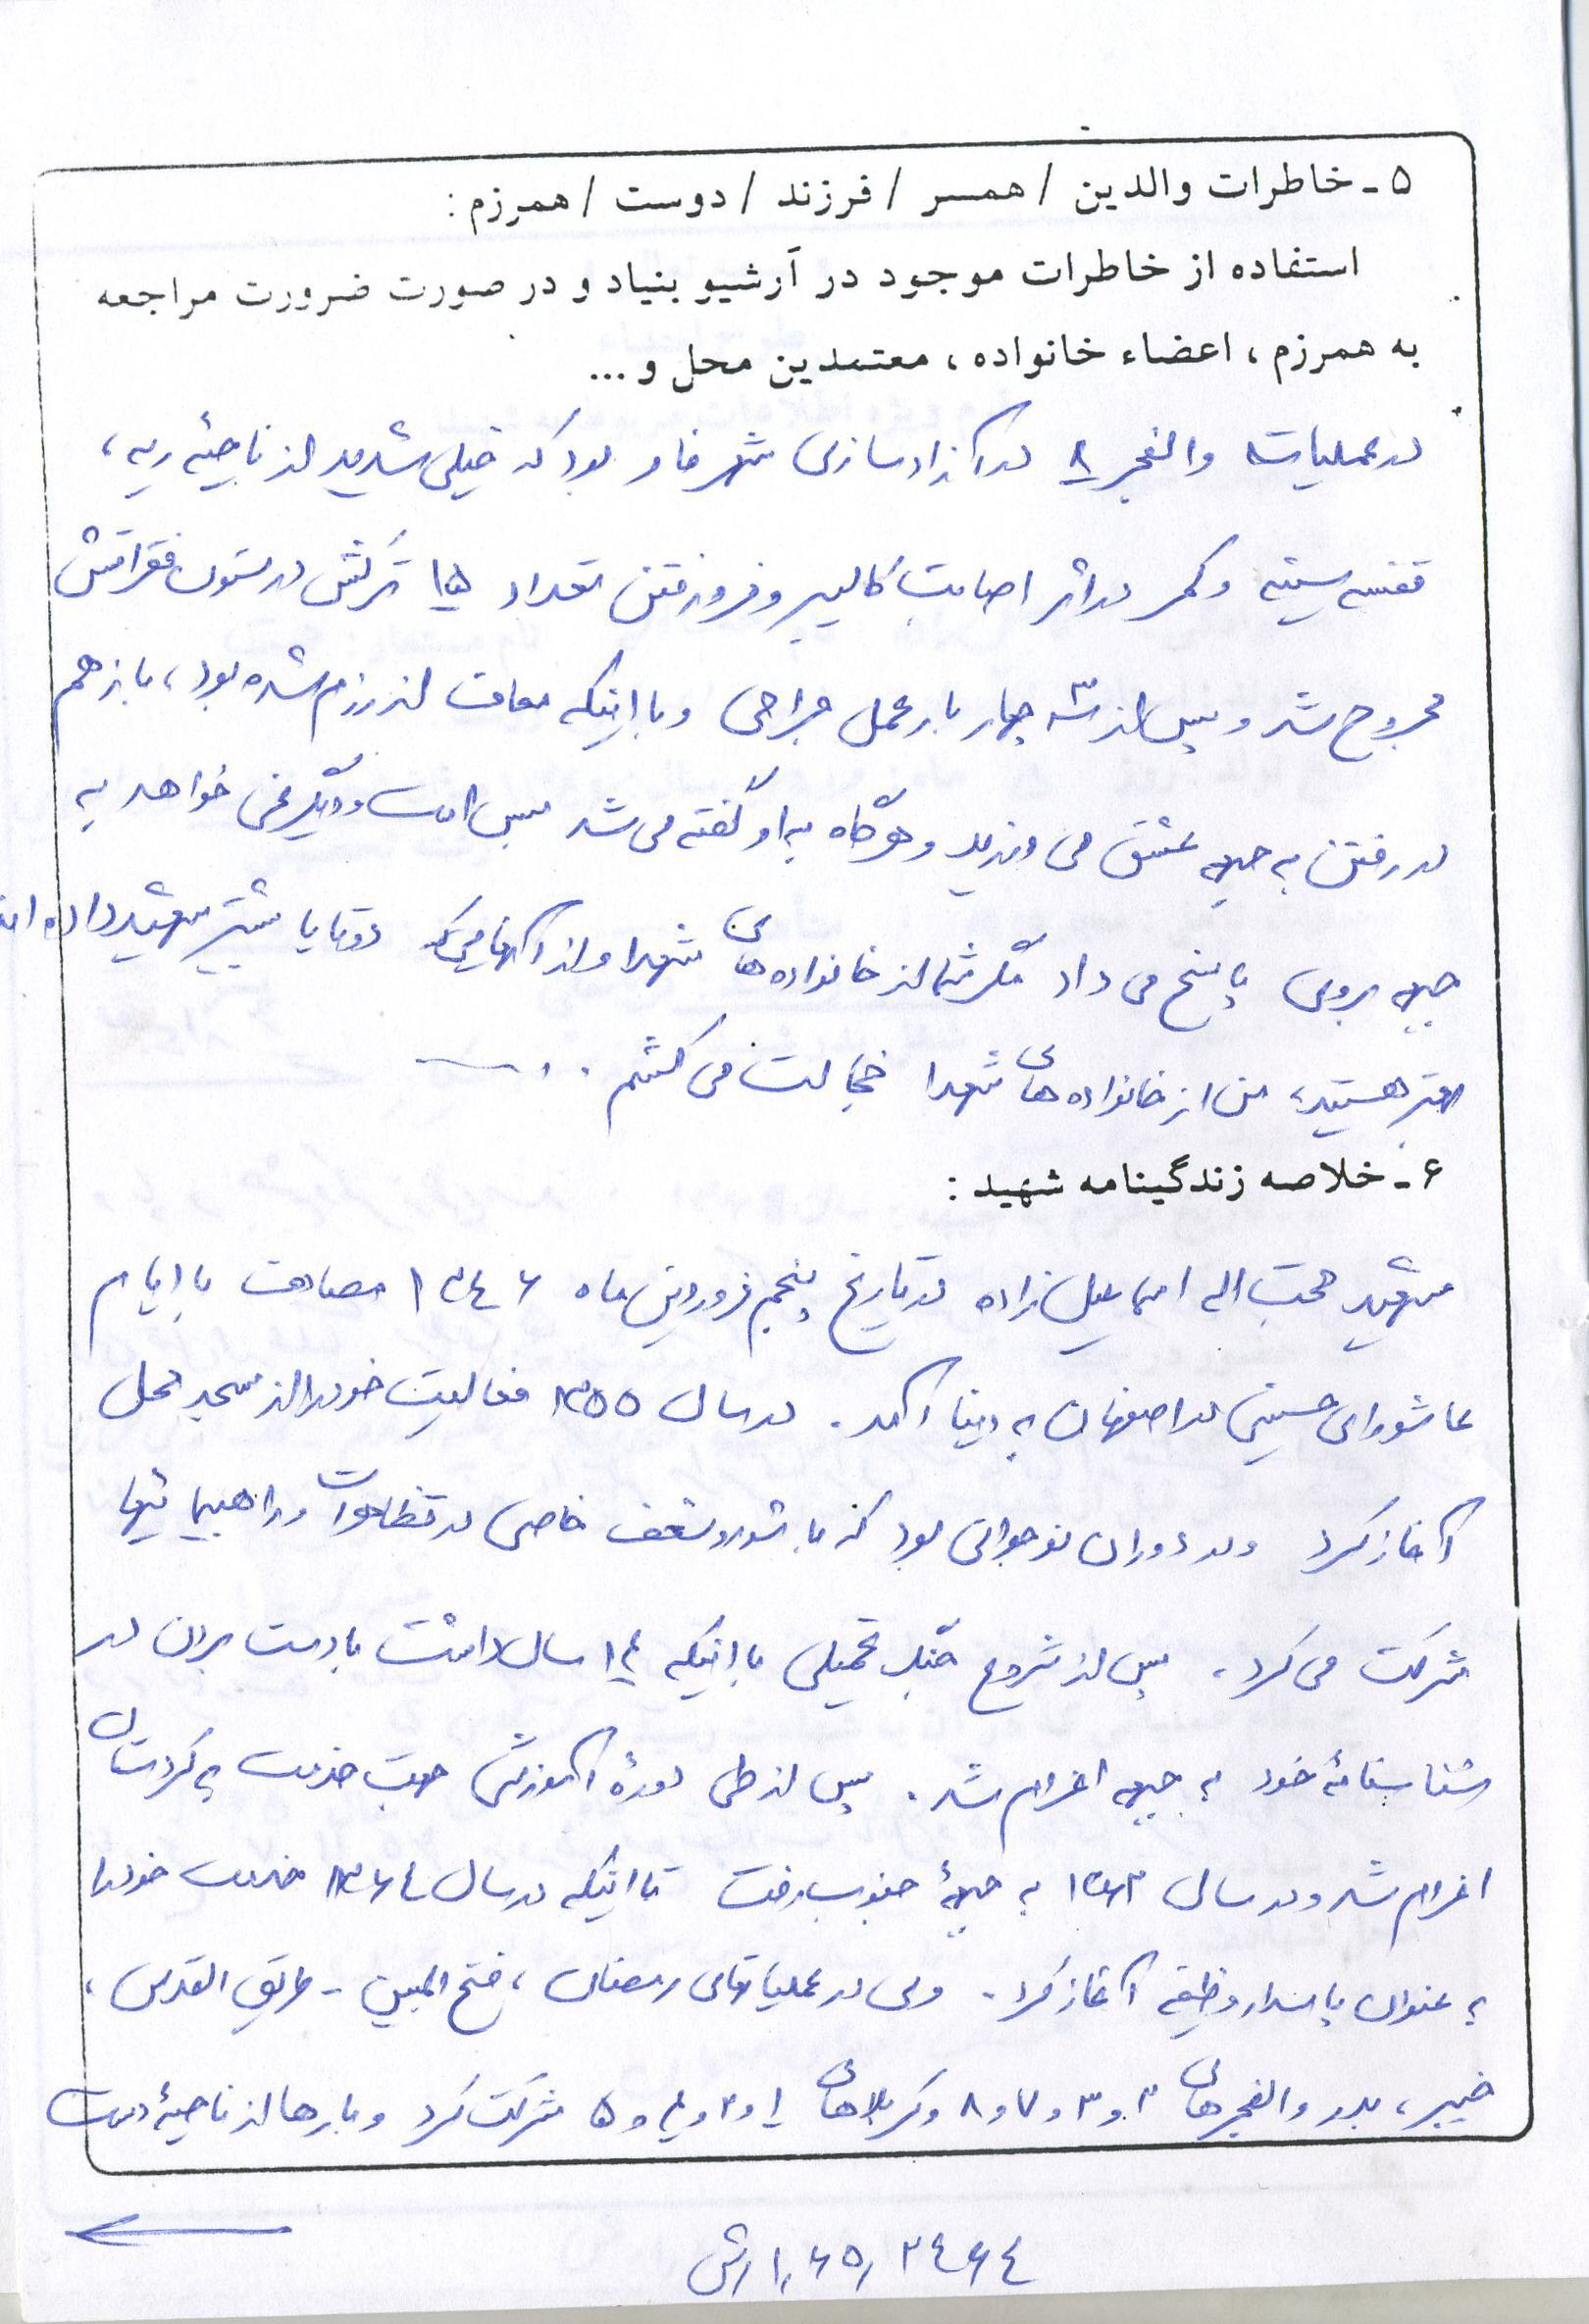 ۵ـ خاطرات والدین / همسر / فرزند / دوست / همرزم :
استفاده از خاطرات موجود در آرشیو بنیاد و در صورت ضرورت مراجعه
به همرزم ، اعضاء خانواده ، معتمدین محل و ...
در عملیات والفجر ۸ در آزادسازی شهر فاو بود که خیلی شدید از ناحیهٔ ریه ،
قفسه سینه و کمر در اثر اصابت کالیبر و فرو رفتن تعداد ۱۵ ترکش در ستون فقراتش
مجروح شد و پس از ۳ چهار بار عمل جراحی و با اینکه معاف از رزم شده بود ، باز هم
در رفتن به جبهه عشق می ورزید و هرگاه به او گفته می شد بس است و دیگر نمی خواهد به
جبهه بروی پاسخ می داد مگر شما از خانواده های شهدا و از آنهایی که دوتا یا بیشتر شهید داده اند
بهتر هستید ، من از خانواده های شهدا خجالت می کشم . . .
۶ـ خلاصه زندگینامه شهید :
شهید محب اله اسماعیل زاده در تاریخ پنجم فروردین ماه ۱۳۴۶ مصادف با ایام
عاشورای حسینی در اصفهان به دنیا آمد . در سال ۱۳۵۵ فعالیت خود را از مسجد محل
آغاز کرد و در دوران نوجوانی بود که با شور و شعف خاصی در تظاهرات و راهپیمائیها
شرکت می کرد . پس از شروع جنگ تحمیلی با اینکه ۱۴ سال داشت با دست بردن در
شناسنامهٔ خود به جبهه اعزام شد . پس از طی دورهٔ آموزشی جهت خدمت به کردستان
اعزام شد و در سال ۱۳۶۲ به جبههٔ جنوب رفت تا اینکه در سال ۱۳۶۴ خدمت خود را
به عنوان پاسدار وظیفه آغاز کرد . وی در عملیاتهای رمضان ، فتح المبین - طریق القدس ،
خیبر ، بدر و الفجرهای ۲ و ۳ و ۷ و ۸ و کربلاهای ۱ و ۲ و ۴ و ۵ شرکت کرد و بارها از ناحیهٔ دست